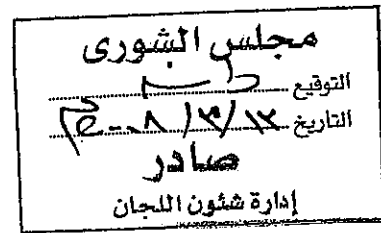 مجلس الشورى
التوقيع
التاريخ ١٢/٣/٢٠٠٨م
صادر
إدارة شئون اللجان